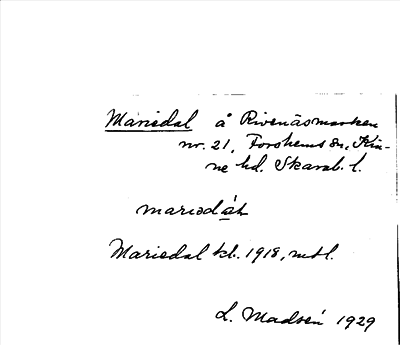 Mariedal å Rivenäsmarken
nr. 21, Forshems sn, Kin-
ne hd. Skarab. l.
Mariedal kb. 1918, mtl.
L. Madsén 1929